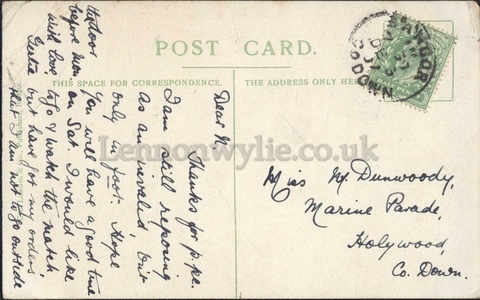 POST CARD.
THIS SPACE FOR CORRESPONDENCE.
THE ADDRESS ONLY
Dear N.
Thanks for p.pc.
I am still reposing
as an invalid, but
only a foot. Hope
You will have a good time
on Sat. I would like
to go & watch the match
but have got my orders
that I am not to go outside
the door
before then
with love
Miss M. Dunwoody,
Marine Parade,
Holywood,
Co. Down.
BANGOR
CO. DOWN
Lennonwylie.co.uk